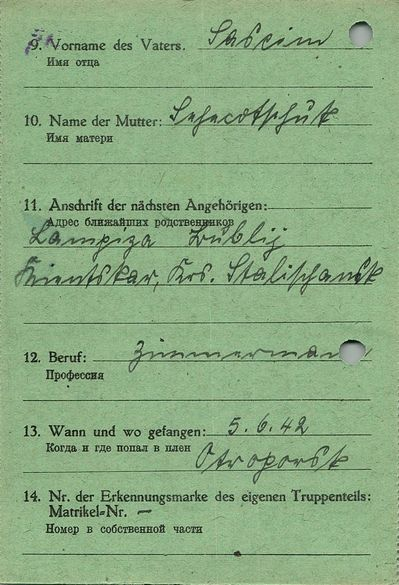 9. Vorname des Vaters. Saseim
Имя отца
10. Name der Mutter:
Имя матери
11. Anschrift der nächsten Angehörigen:
Адрес ближайших родственников
Lampiza Büblij
Krs. Stalischansk
12. Beruf: Zimmermann
Профессия
13. Wann und wo gefangen: 5.6.42
Когда и где попал в плен
Otroporsk
14. Nr. der Erkennungsmarke des eigenen Truppenteils:
Matrikel-Nr. —
Номер в собственной части